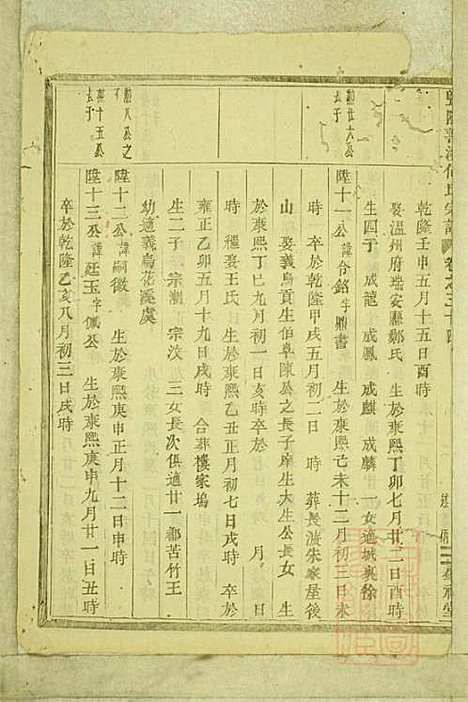 乾隆壬申五月十五日酉時
娶温州府瑞安縣鄭氏 生於康熙丁卯七月廿二日酉時
生四子 成龍 成鳳 成麒 成麟 一女適城裏徐
陞十一公諱令銘字鼎書 生於康熙己未十二月初三日未
時 卒於乾隆甲戌五月初二日 時 葬長渡朱家屋後
山 娶義烏貢生伯阜陳公之長子庠生大生公長女 生
於康熙丁巳九月初一日亥時卒於 月 日
時 繼娶王氏 生於康熙乙丑正月初七日戌時 卒於
雍正乙卯五月十九日戌時 合葬樓家塢
生二子 宗潮 宗汶 三女長次俱適廿一都苦竹王
幼適義烏花溪虞
陞十二公諱嗣徽 生於康熙庚申正月十二日申時
陞十三公諱廷玉字佩公 生於康熙庚申九月廿一日丑時
卒於乾隆乙亥八月初三日戌時